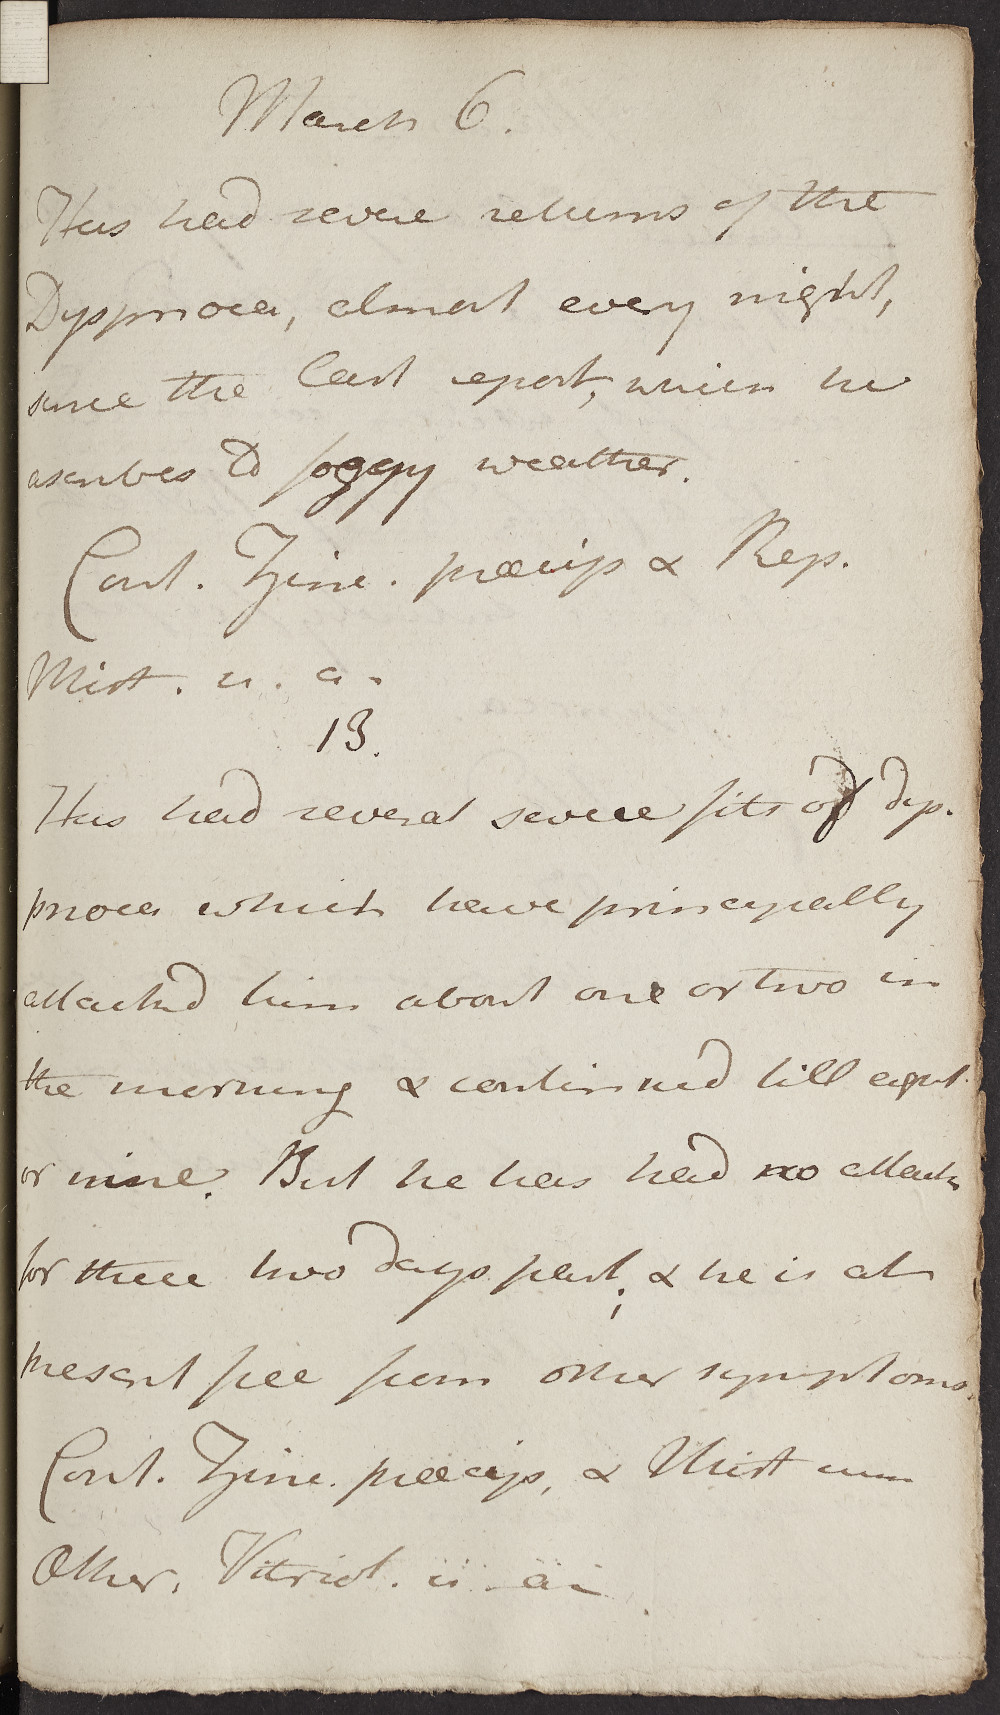 March 6.
Has had severe returns of the
Dyspnoea, almost every night,
since the last report, which he
ascribes to foggy weather.
Cont. Zinc. præcip & Rep.
Mist. u. a.
13.
Has had several severe fits of dys-
pnoea which have principally
attacked him about one or two in
the morning & continued till eight
or nine. But he has had no attack
for these two days past; & he is at
present free from other symptoms.
Cont. Zinc. præcip, & Mist cum
Æther. Vitriol. u a